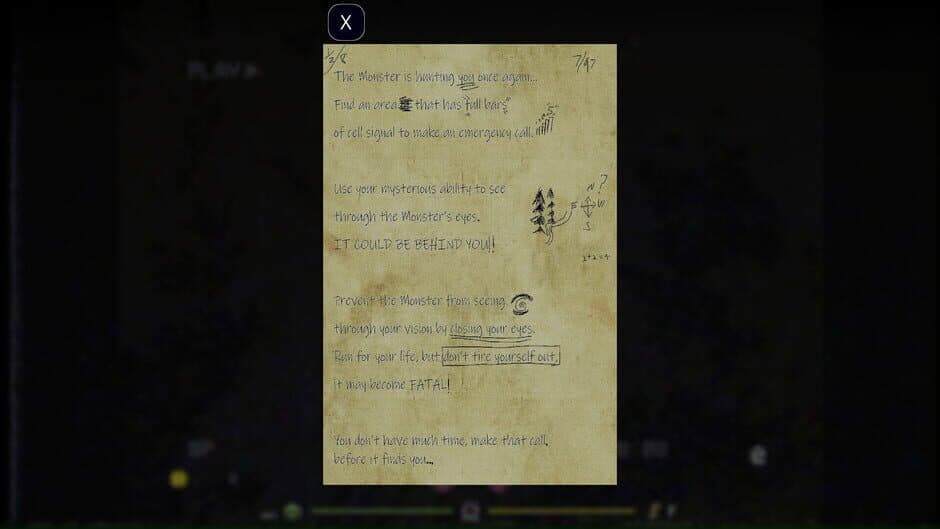 X
1/3/8
7/47
The Monster is hunting you once again...
Find an area that has "full bars"
of cell signal to make an emergency call.
5
Use your mysterious ability to see
through the Monster's eyes.
IT COULD BE BEHIND YOU!!
N ?
E W
S
2+2=4
Prevent the Monster from seeing
through your vision by closing your eyes.
Run for your life, but don't tire yourself out,
it may become FATAL!
You don't have much time, make that call,
before it finds you...
PLAY